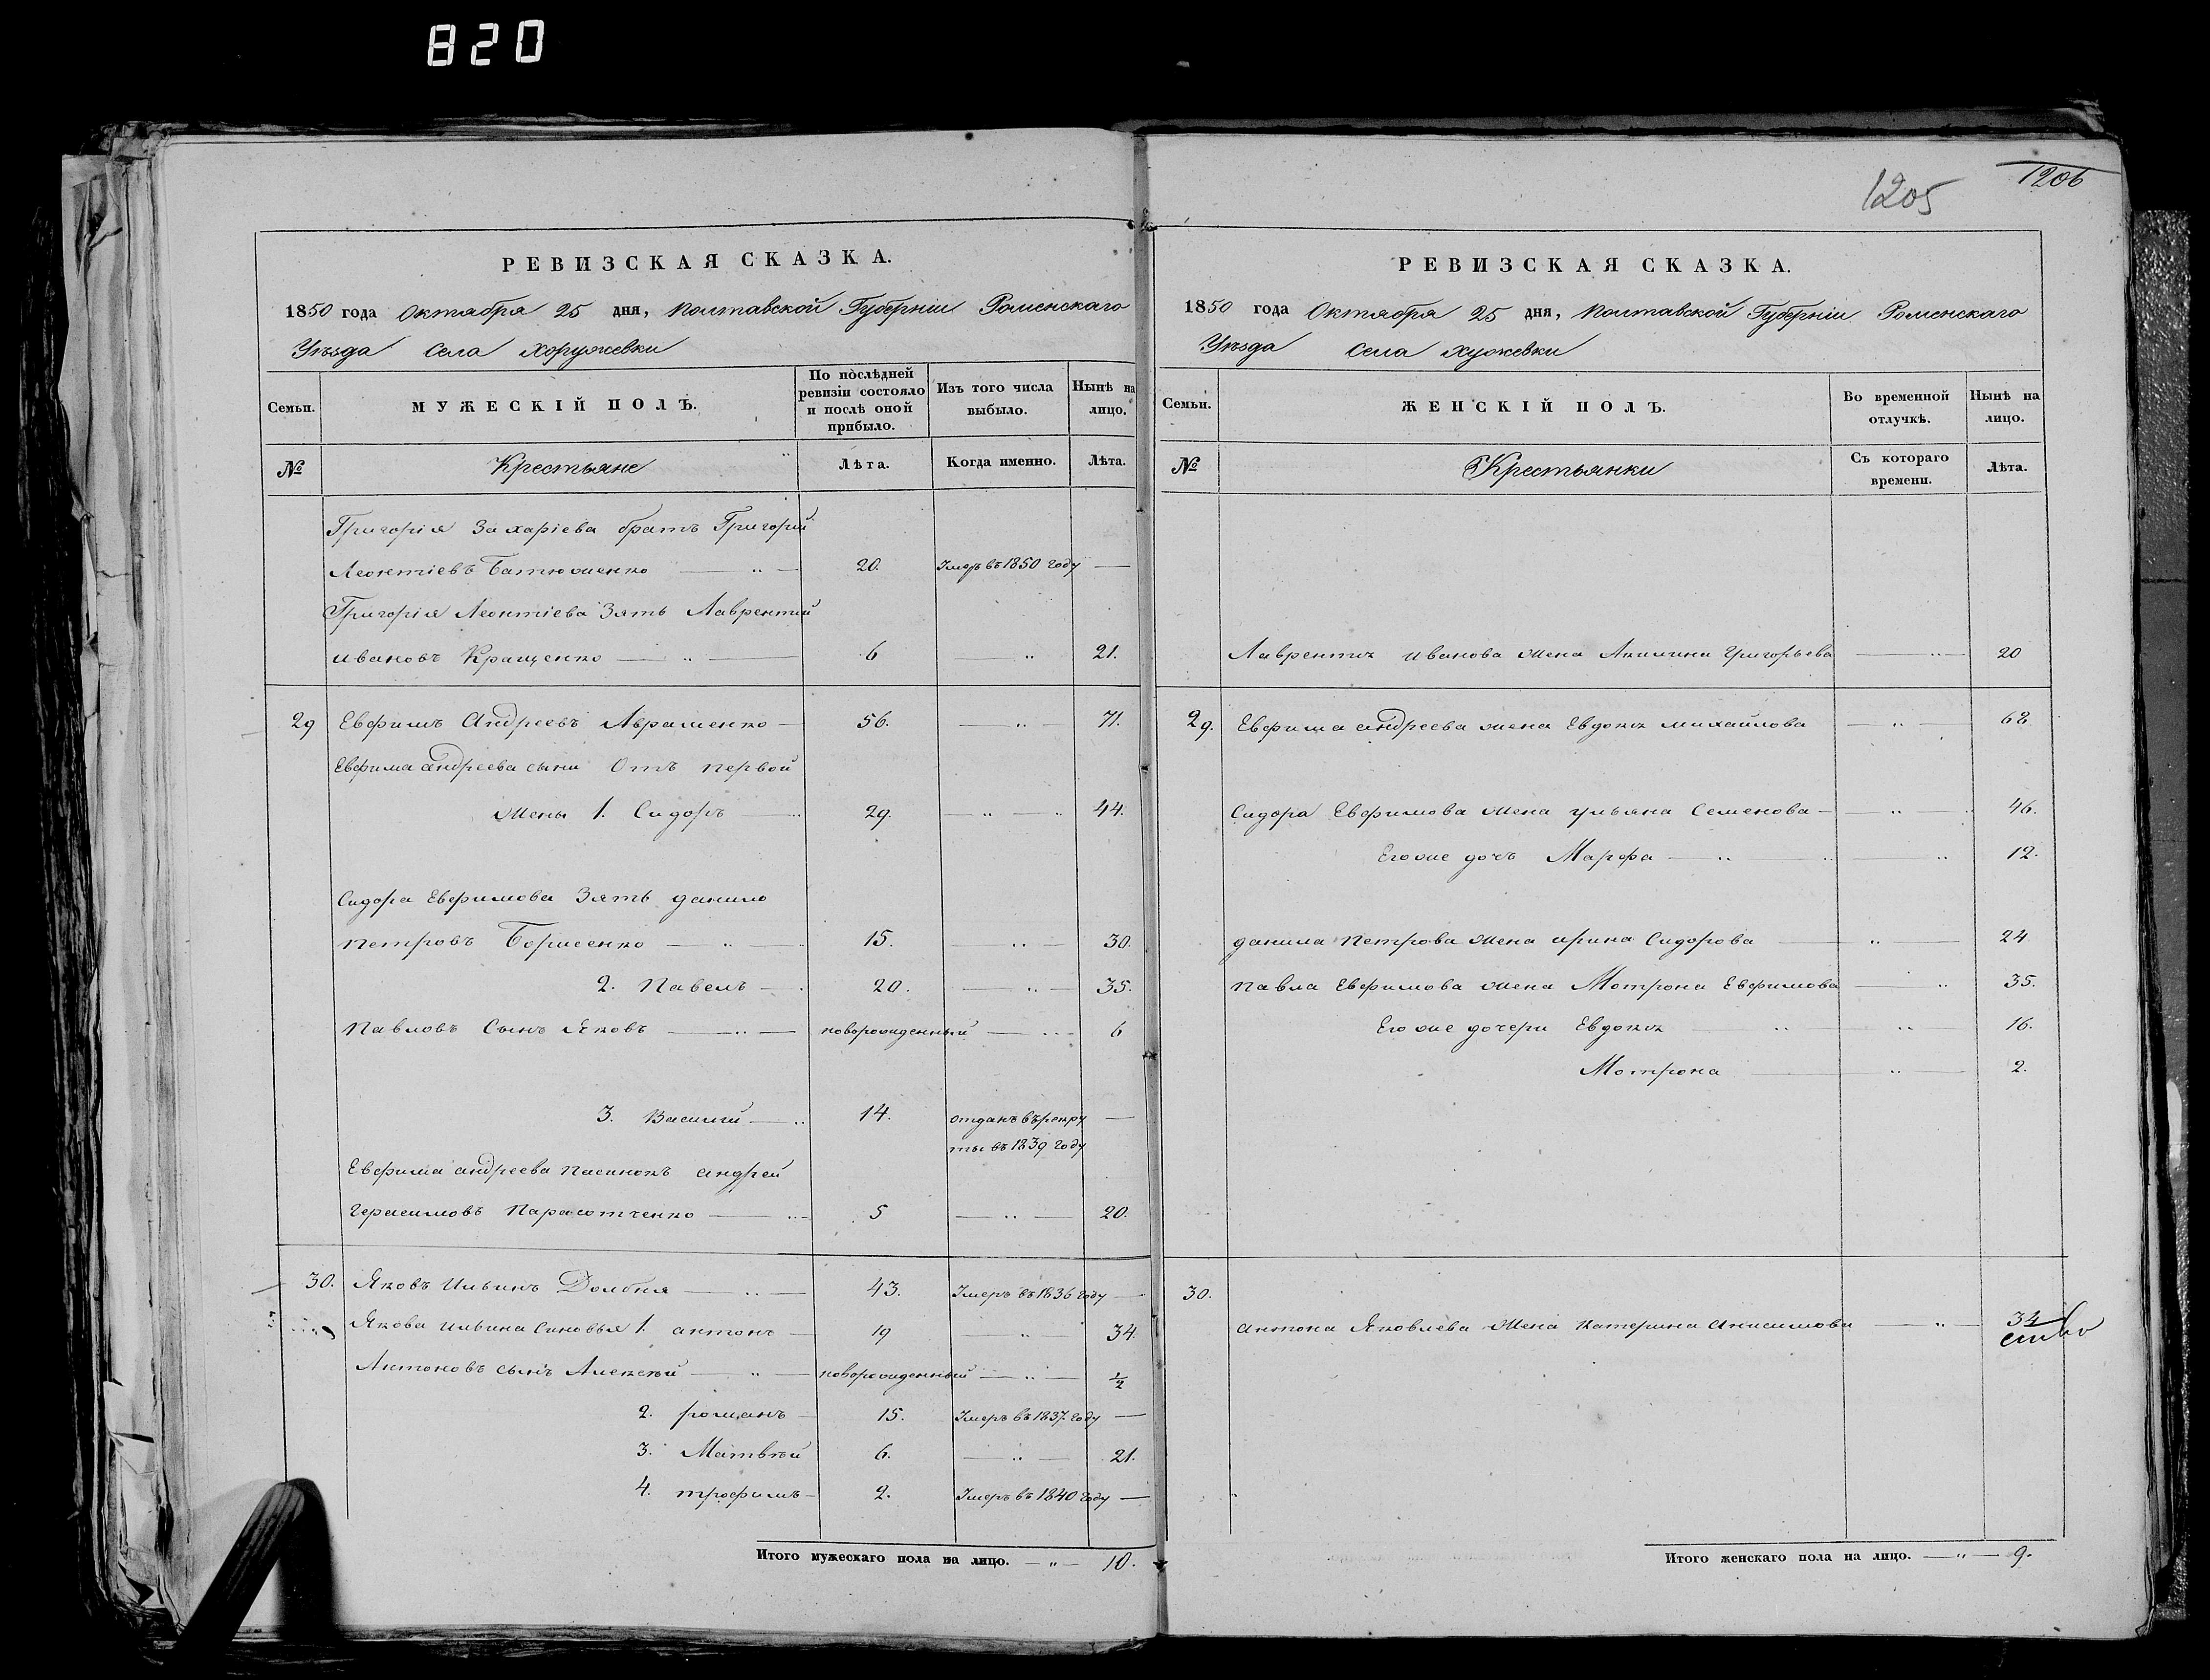 820
1205
1206
РЕВИЗСКАЯ СКАЗКА.
1850 года Октября 25 дня, Полтавской Губерніи Роменскаго
Уѣзда Села Хоружевки
Семьи.
МУЖЕСКІЙ ПОЛЪ.
По послѣдней ревизіи состояло и послѣ оной прибыло.
Изъ того числа выбыло.
Нынѣ на лицо.
№ Крестьяне Лѣта. Когда именно. Лѣта.
Григорія Захаріева братъ Григорій
Леонтіевъ 20. Умеръ въ 1850 году —
Григорія Леонтіева Зять Лаврентий
Ивановъ Кращенко — „ — 6 — „ 21.
29 Евфимъ Андреевъ Авраменко — 56. — „ 71.
Евфима андреева сыни Отъ первой
жены 1. Сидоръ — 29. „ — „ 44.
Сидора Евфимова Зять данило
Петровъ Борисенко — „ — 15. „ — 30.
2. Павелъ — 20. — „ — 35.
Павловъ Сынъ Яковъ — „ — новорожденный — „ 6
3. Василий — „ 14. отданъ въ рекру —
ты въ 1839 году
Евфима андреева пасинокъ андрей
Герасимовъ — „ 5 — „ — 20.
30. Яковъ Ильинъ Долбня — „ — 43. Умеръ въ 1836 году —
Якова ильина Синовья 1. антонъ — 19 „ 34.
Антоновъ сынъ Алексѣй — „ — новорожденный — „ — 1/2
2. романъ — 15. Умеръ въ 1837. году —
3. Матвѣй 6. — „ — 21.
4. трофимъ — 2. Умеръ въ 1840 году —
Итого мужескаго пола на лицо. — „ — 10.
РЕВИЗСКАЯ СКАЗКА.
1850 года Октября 25 дня, Полтавской Губерніи Роменскаго
Уѣзда Села Хужевки
Семьи.
ЖЕНСКІЙ ПОЛЪ.
Во временной отлучкѣ.
Нынѣ на лицо.
№ Крестьянки Съ котораго времени. Лѣта.
Лаврентия Иванова жена Акилина Григорьева — „ — 20
29. Евфима андреева жена Евдокия михайлова — „ — 62.
Сидора Евфимова жена ульяна Семенова — „ — 46.
Его же дочъ Марфа — „ „ 12.
данила Петрова жена ирина Сидорова — „ — 24
Павла Евфимова жена Мотрона Евфимова — „ 35.
Его же дочери Евдокия — „ „ 16.
Мотрона — „ — 2.
30.
антона Яковлева жена Катерина анисимова — „ — 34
Итого женскаго пола на лицо. — „ — 9.